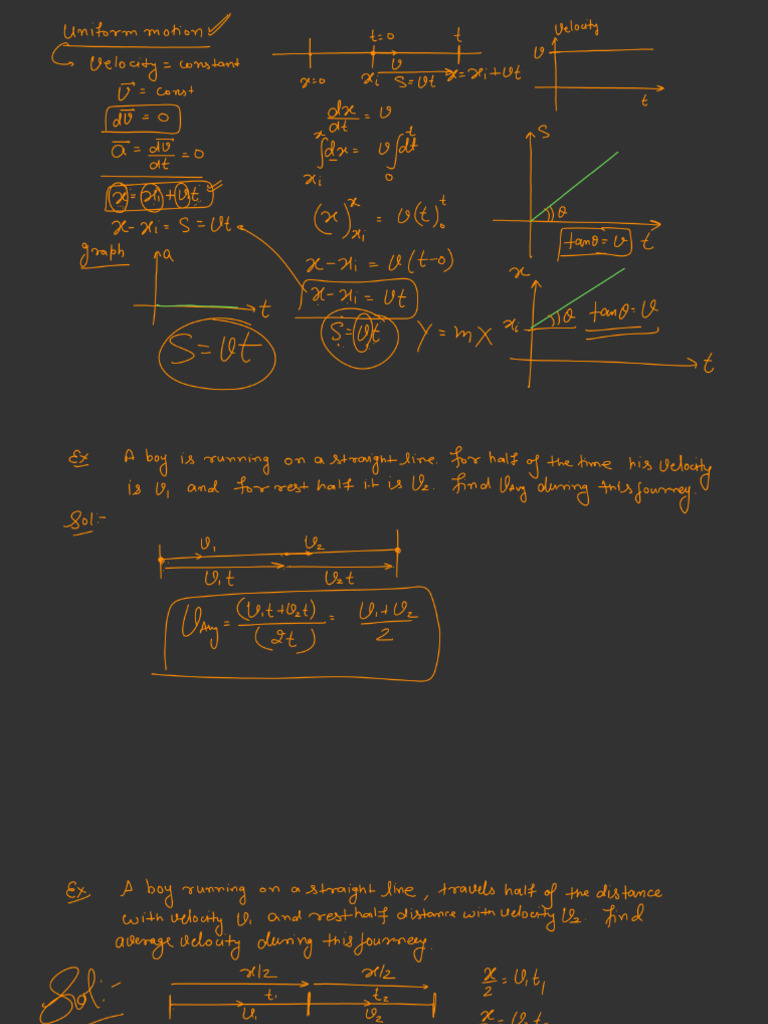 Uniform motion
Velocity = constant
v⃗ = const
dv̅ = 0
a̅ = dv̅/dt = 0
x = xi + vt
x - xi = S = vt
graph
a
t
S = vt
t=0
t
v
x=0
xi
S=vt
x = xi + vt
dx/dt = v
∫dx = v∫dt
x
t
xi
0
(x)ˣxi = v(t)ᵗ₀
x - xi = v(t-0)
x - xi = vt
S = vt
Y = mX
Velocity
v
t
S
θ
tanθ = v
t
x
xi
θ
tanθ = v
t
Ex A boy is running on a straight line. For half of the time his velocity
is v₁ and for rest half it is v₂. find vAvg during this journey.
Sol:-
v₁
v₂
v₁t
v₂t
vAvg = (v₁t+v₂t)/(2t) = v₁+v₂/2
Ex A boy running on a straight line, travels half of the distance
with velocity v₁ and rest half distance with velocity v₂. find
average velocity during this journey.
Sol:-
x/2
x/2
t₁
t₂
v₁
v₂
x/2 = v₁t₁